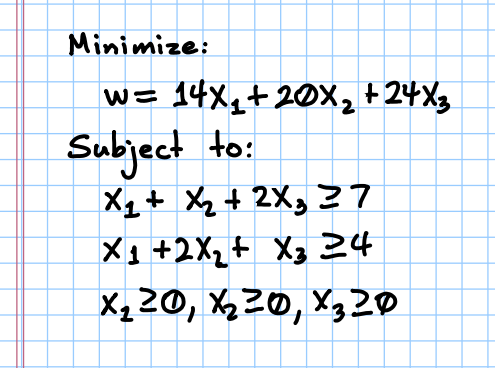 Minimize:
w = 14x₁ + 20x₂ + 24x₃
Subject to:
x₁ + x₂ + 2x₃ ≥ 7
x₁ + 2x₂ + x₃ ≥ 4
x₁ ≥ 0, x₂ ≥ 0, x₃ ≥ 0